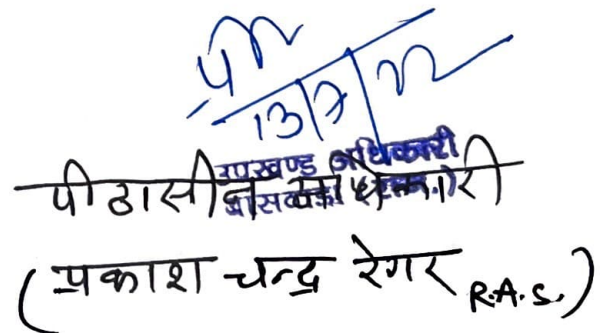 13/7/22
उपखण्ड अधिकारी
पीठासीन अधिकारी
(प्रकाश चन्द्र रेगर R.A.S.)